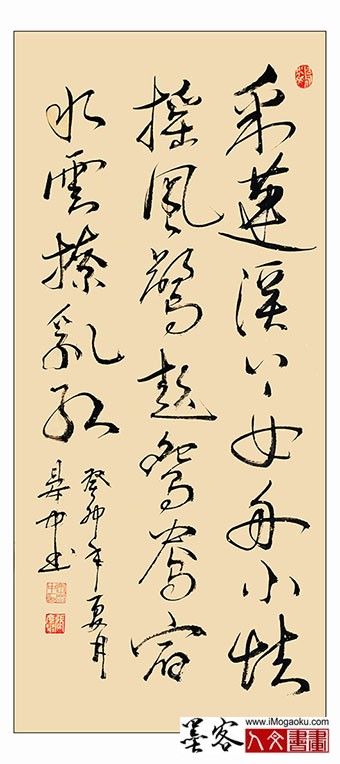 采蓮溪上女舟小怯
搖風驚起鴛鴦宿
水雲撩亂紅
癸卯年夏月
中书
墨客
www.iMogaoku.com
人文書畫